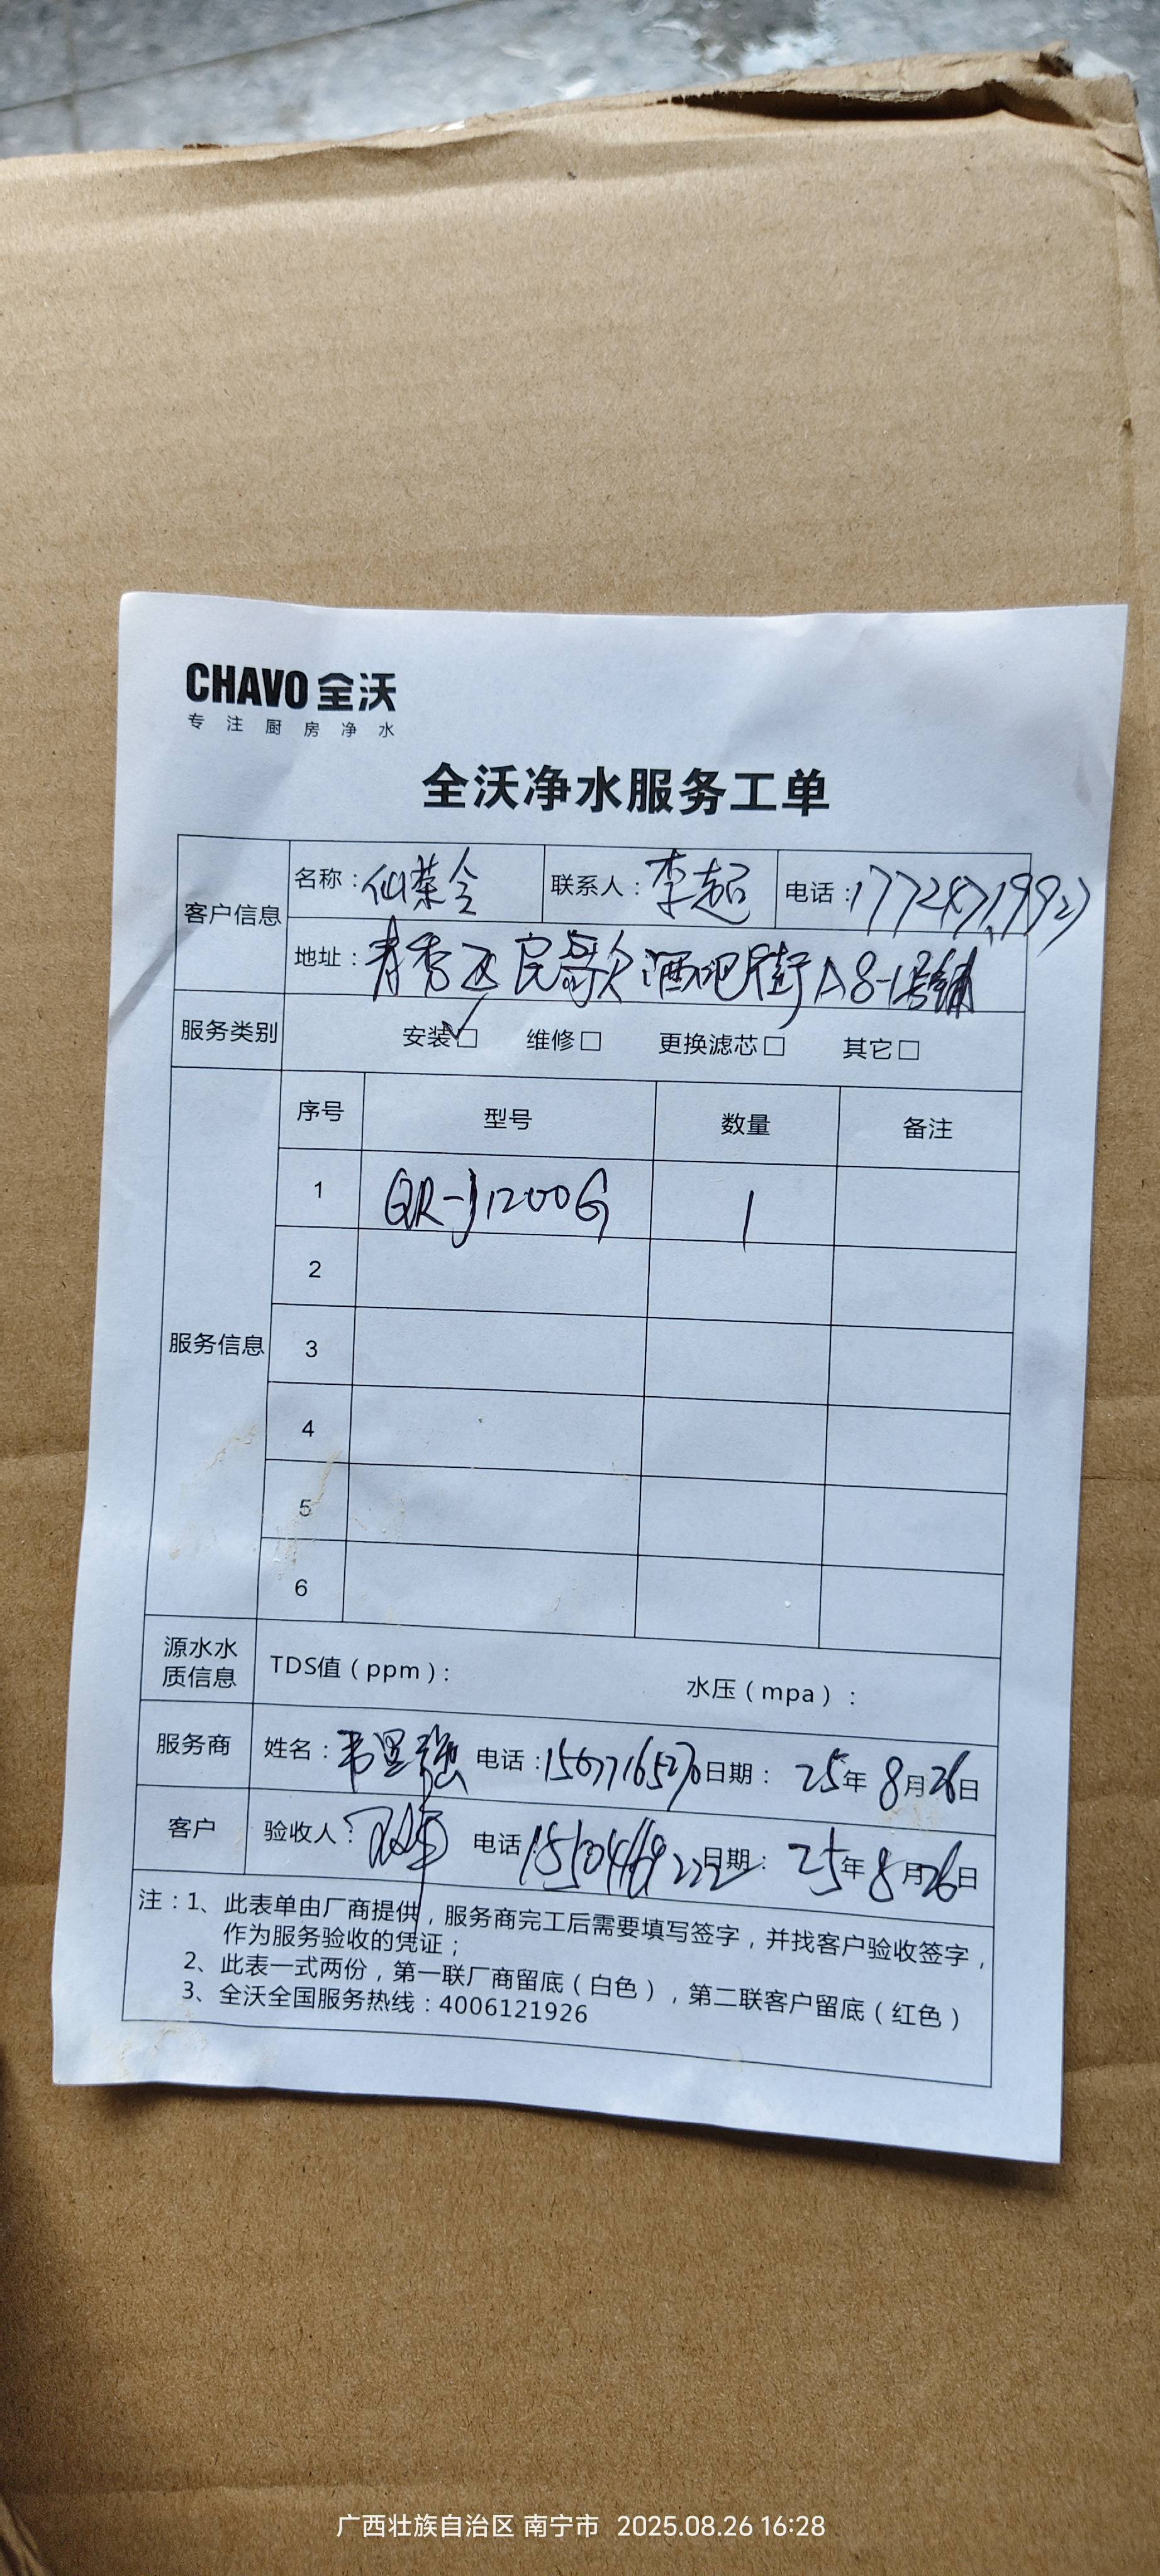 CHAVO 全沃
专注厨房净水
全沃净水服务工单
客户信息 名称：仙荣会 联系人：李超 电话：
地址：青秀区民歌酒吧街A8-1号铺
服务类别 安装☑ 维修□ 更换滤芯□ 其它□
服务信息 序号 型号 数量 备注
1 QR-J1200G 1
2
3
4
5
6
源水水质信息 TDS值（ppm）： 水压（mpa）：
服务商 姓名： 电话：15677165270 日期：25年8月26日
客户 验收人： 电话 日期：25年8月26日
注：1、此表单由厂商提供，服务商完工后需要填写签字，并找客户验收签字，
作为服务验收的凭证；
2、此表一式两份，第一联厂商留底（白色），第二联客户留底（红色）
3、全沃全国服务热线：4006121926
广西壮族自治区 南宁市 2025.08.26 16:28